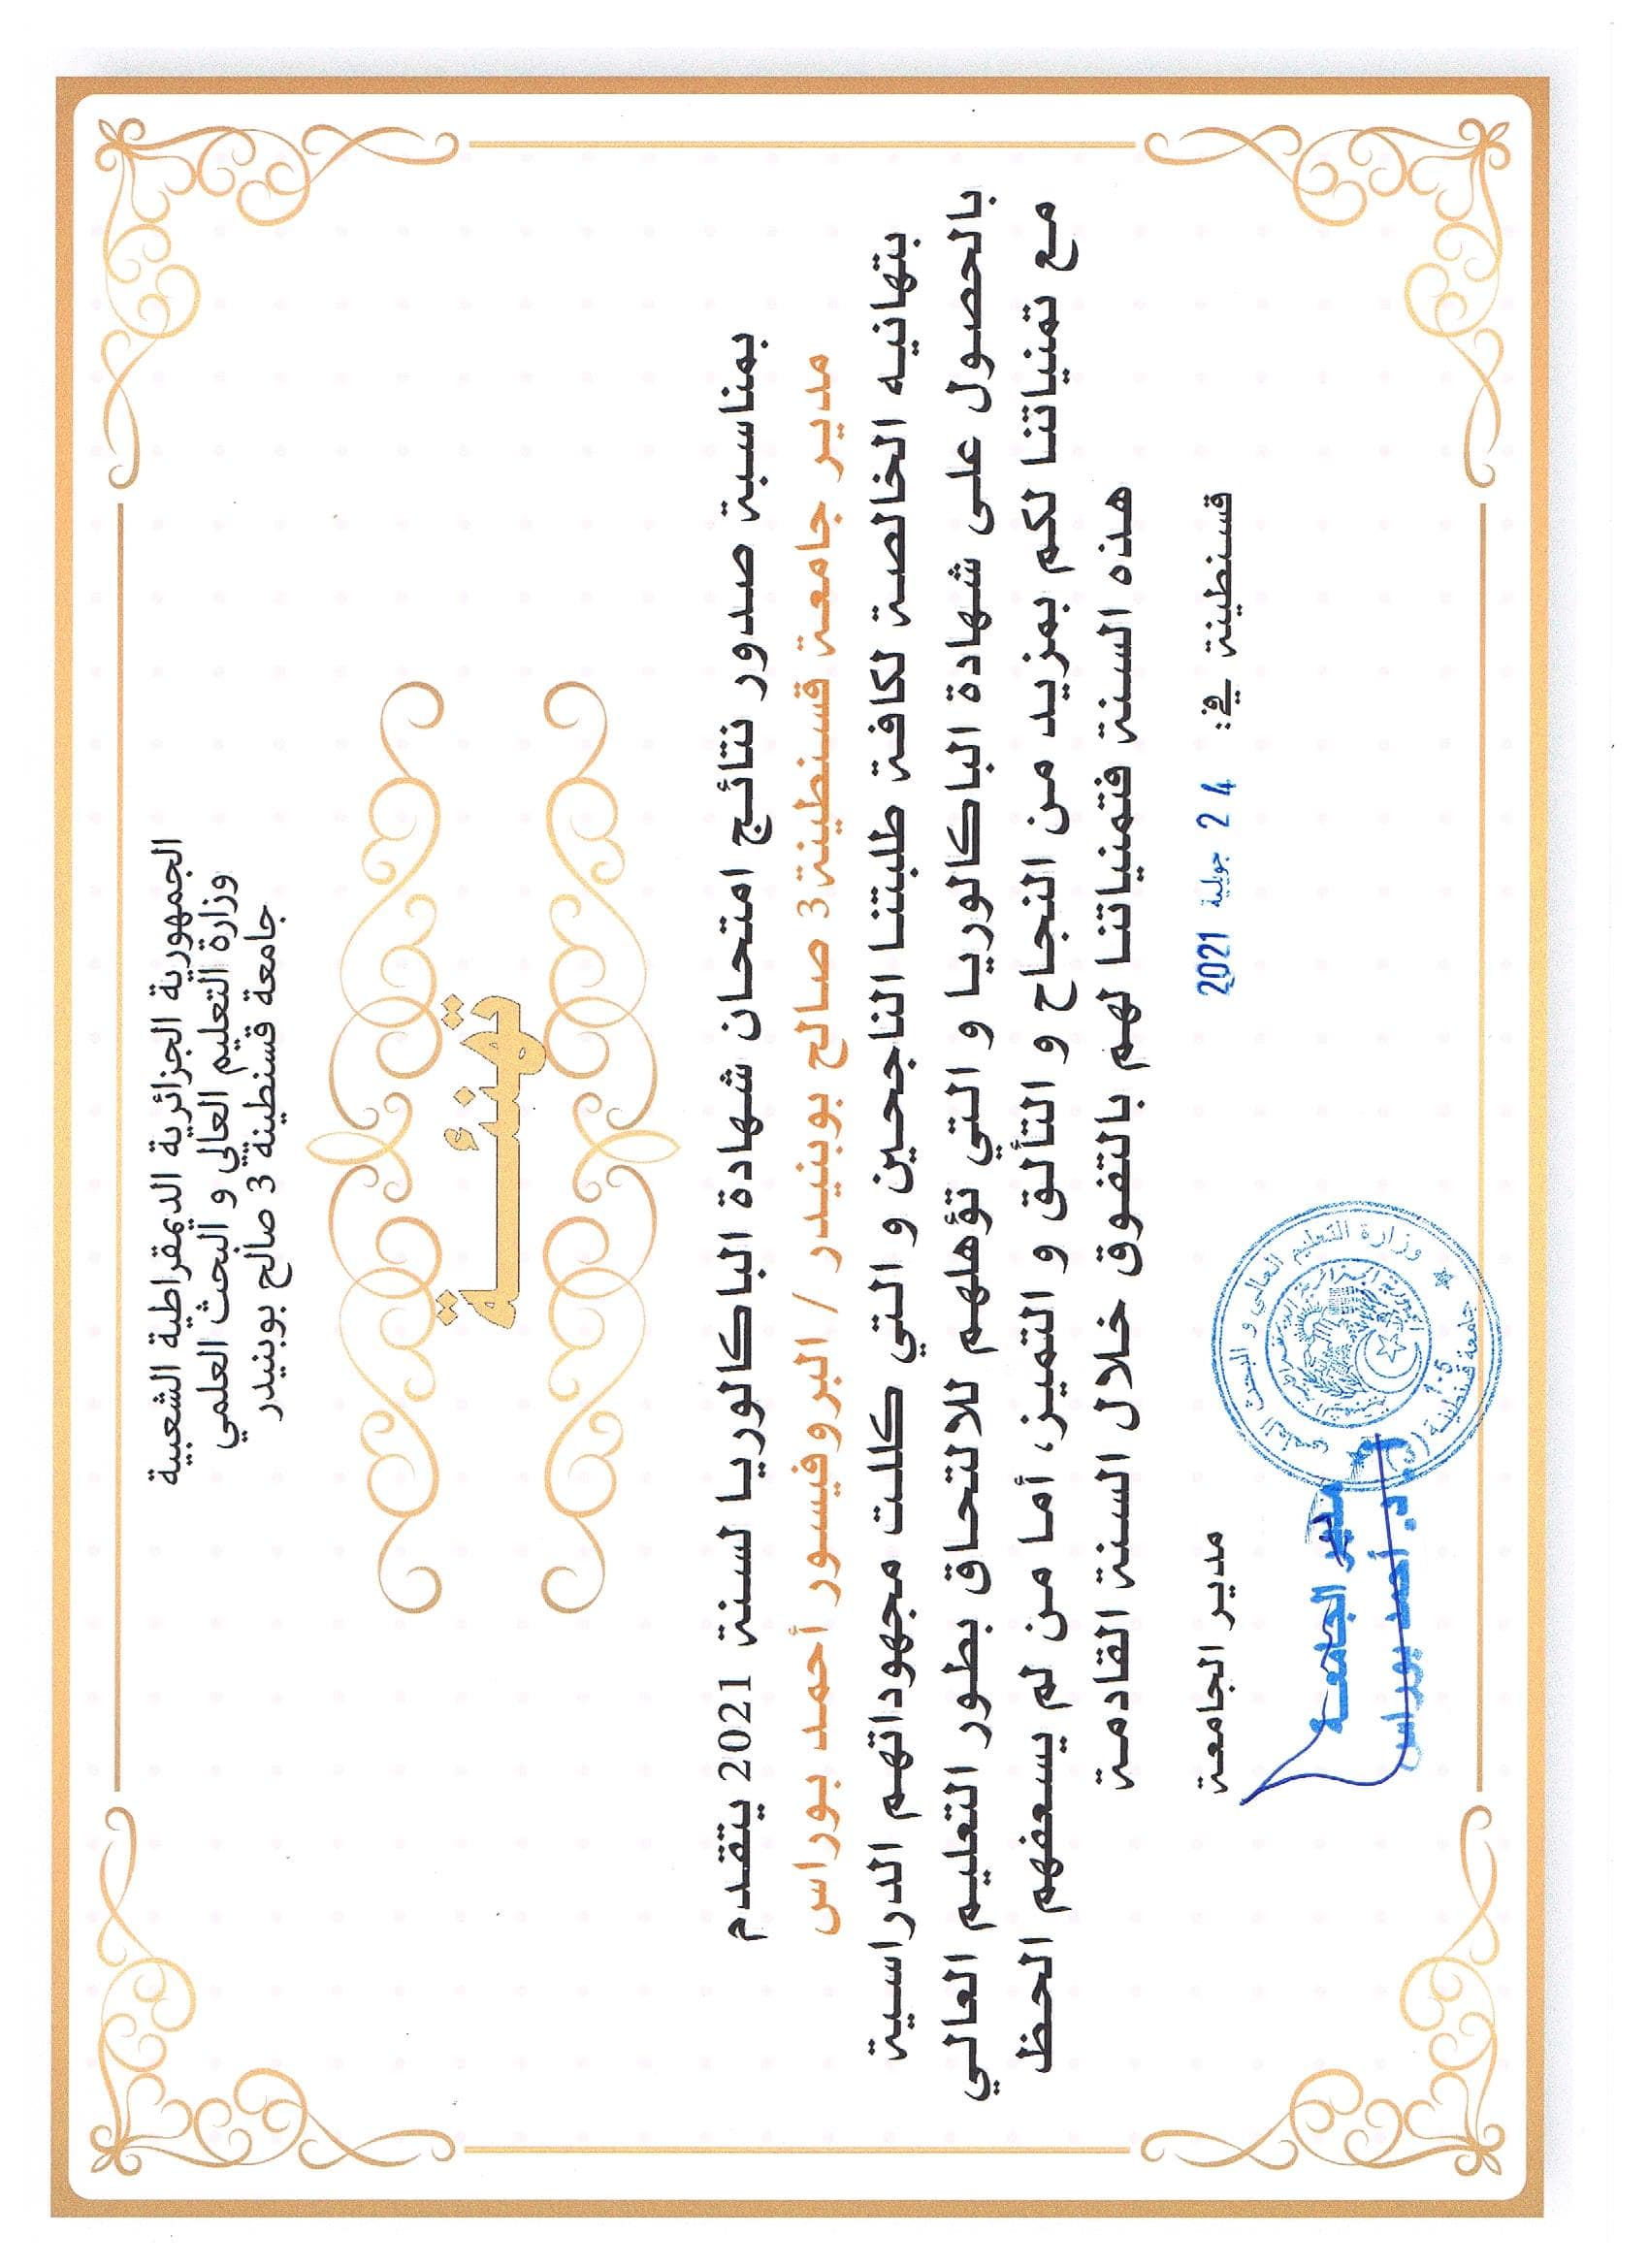 الجمهورية الجزائرية الديمقراطية الشعبية
وزارة التعليم العالي و البحث العلمي
جامعة قسنطينة 3 صالح بوبنيدر
تهنئـــة
بمناسبة صدور نتائج امتحان شهادة الباكالوريا لسنة 2021 يتقدم
مدير جامعة قسنطينة3 صالح بوبنيدر / البروفيسور أحمد بوراس
بتهانيه الخالصة لكافة طلبتنا الناجحين و التي كللت مجهوداتهم الدراسية
بالحصول على شهادة الباكالوريا و التي تؤهلهم للالتحاق بطور التعليم العالي
مع تمنياتنا لكم بمزيد من النجاح و التألق و التميز، أما من لم يسعفهم الحظ
هذه السنة فتمنياتنا لهم بالتفوق خلال السنة القادمة
قسنطينة في: 2 4 جويلية 2021
مدير الجامعة
وزارة التعليم العالي و البحث العلمي
جامعة قسنطينة
مدير الجامعة
أ.د. أحمد بوراس